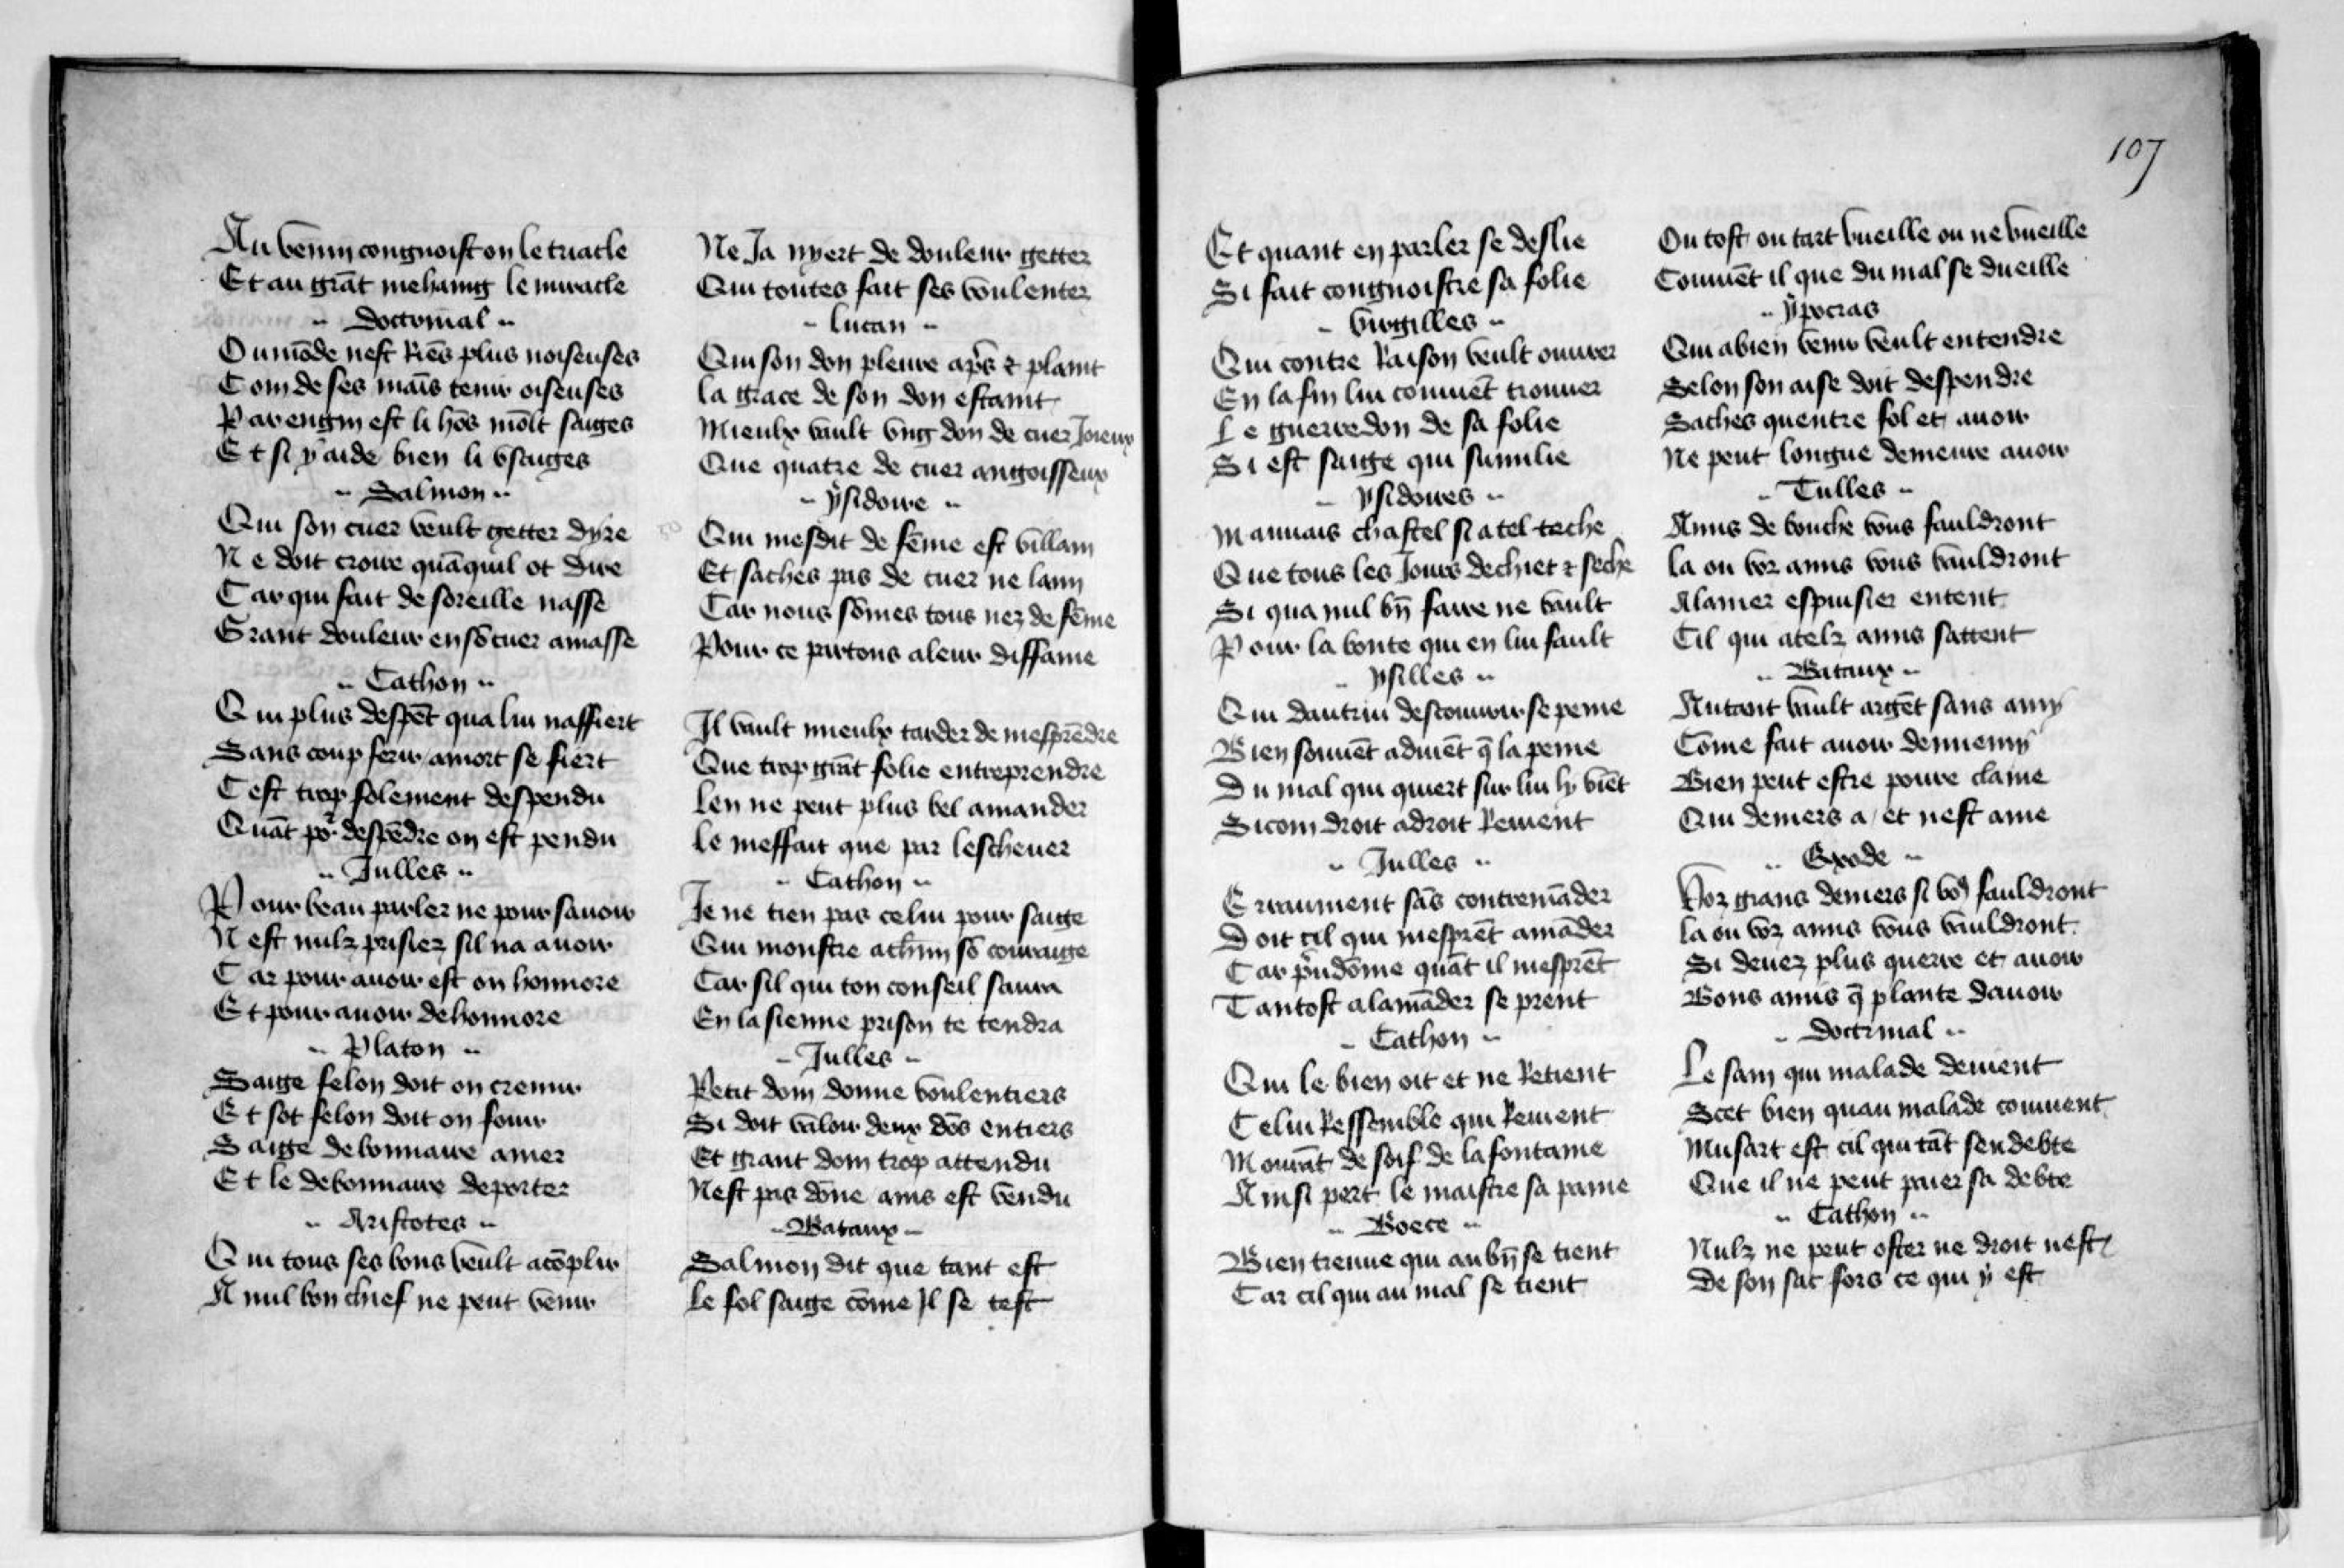 Au venin congnoist on le triacle
Et au grãt mehaing le miracle
Doctrinal
Ou mõde nest riẽs plus noiseuses
Com de ses mais tenir oiseuses
Par engin est li hõs mõlt saiges
Et si y aide bien li vsaiges
Salmon
Qui son cuer veult getter dyre
Ne doit croire quãquil ot dire
Car qui fait de soreille nasse
Grant douleur en sõ cuer amasse
Cathon
Qui plus despẽt qua lui naffiert
Sans coup ferir amort se fiert
Cest trop folement despendu
Quãt por despẽdre on est pendu
Tulles
Pour beau parler ne pour sauoir
Nest nulz prisiez sil na auoir
Car pour auoir est on honnore
Et pour auoir dehonnore
Platon
Saige felon doit on cremir
Et sot felon doit on fouir
Saige debonnaire amer
Et le debonnaire deporter
Aristotes
Qui tous ses bons veult acõplir
A nul bon chief ne peut venir
Ne Ja nyert de douleur getter
Qui toutes fait ses voulenter
Lucan
Qui son don pleure apřs & plaint
La grace de son don estaint
Mieulx vault vng don de cuer Joieux
Que quatre de cuer angoisseux
ysidoire
Qui mesdit de fẽme est villain
Et saches pas de cuer ne laim
Car nous sõmes tous nez de fẽme
Pour ce partons a leur diffame
Il vault mieulx tarder de mesprẽdre
Que trop grãt folie entreprendre
Len ne peut plus bel amander
Le meffait que par lescheuer
Cathon
Je ne tien pas celui pour saige
Qui monstre achun sõ couraige
Car sil qui ton conseil saura
En la sienne prison te tendra
Tulles
Petit dom donne voulentiers
Si doit valoir deux dõs entiers
Et grant dom trop attendu
Nest pas dõne ains est vendu
Bataux
Salmon dit que tant est
Le fol saige cõme Jl se test
107
Et quant en parler se deslie
Si fait congnoistre sa folie
Virgilles
Qui contre Raison veult ouurer
En la fin lui conuiẽt trouuer
Le guerredon de sa folie
Si est saige qui sumilie
ysidoires
Mauuais chastel si a tel teche
Que tous les Jours dechiet & seche
Si qua nul bñ faire ne vault
Pour la bonte qui en lui fault
ysilles
Qui dautrui descouurir se peine
Bien souuẽt aduiẽt q̃ la peine
Du mal qui quiert sur lui ly viẽt
Sicom droit a droit Reuient
Tulles
Erraument sãs contremãder
Doit cil qui mesprẽt amãder
Car p̃udõme quãt il mesprẽt
Tantost a lamãder se prent
Cathon
Qui le bien oit et ne Retient
Celui Ressemble qui Reuient
Mourãt de soif de la fontaine
Ainsi pert le maistre sa paine
Boece
Bien treuue qui au bñ se tient
Car cil qui au mal se tient
Ou tost ou tart vueille ou ne vueille
Conuiẽt il que du mal se dueille
ypocras
Qui a bien venir veult entendre
Selon son aise doit despendre
Saches quentre fol et auoir
Ne peut longue demeure auoir
Tulles
Amis de bouche vous fauldront
La ou voz amis vous vauldront
A lamer espuisier entent
Cil qui a telz amis sattent
Bataux
Autant vault argẽt sans amy
Cõme fait auoir dennemy
Bien peut estre poure clame
Qui deniers a / et nest ame
Exode
Voz grans deniers si vo9 fauldront
La ou voz amis vous vauldront
Si deuez plus querre et auoir
Bons amis q̃ plante dauoir
Doctrinal
Le sain qui malade deuient
Scet bien quau malade conuient
Musart est cil qui tãt sendebte
Que il ne peut paier sa debte
Cathon
Nulz ne peut oster ne droit nest
De son sac fors ce qui y est